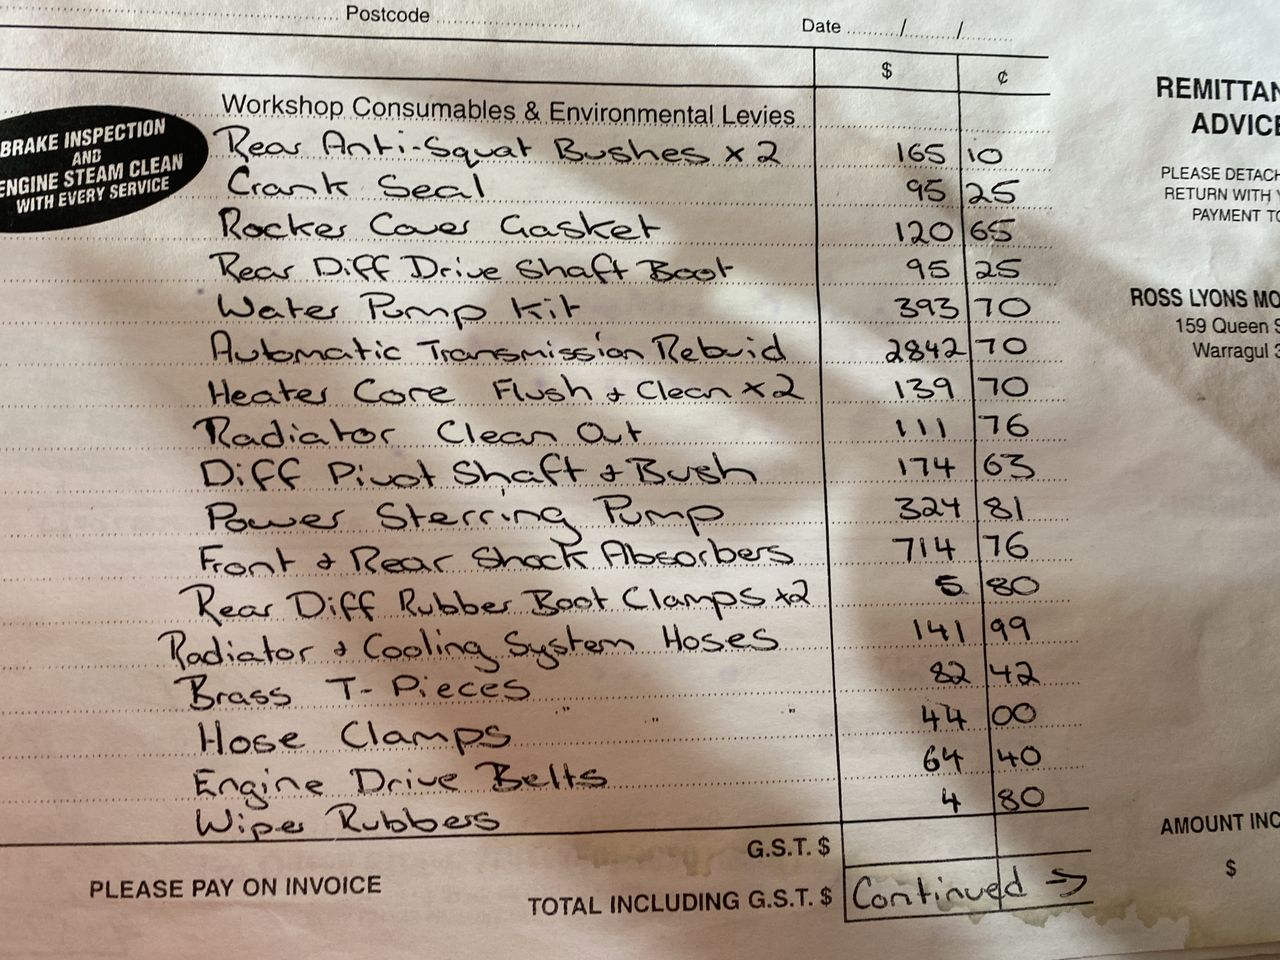 Postcode
Date ....../....../......
$ ¢
REMITTAN
ADVICE
PLEASE DETACH
RETURN WITH Y
PAYMENT TO
ROSS LYONS MO
159 Queen S
Warragul 3
BRAKE INSPECTION
AND
ENGINE STEAM CLEAN
WITH EVERY SERVICE
Workshop Consumables & Environmental Levies
Rear Anti-Squat Bushes x 2 165 10
Crank Seal 95 25
Rocker Cover Gasket 120 65
Rear Diff Drive Shaft Boot 95 25
Water Pump Kit 393 70
Automatic Transmission Rebuid 2842 70
Heater Core Flush & Clean x 2 139 70
Radiator Clean Out 111 76
Diff Pivot Shaft & Bush 174 63
Power Sterring Pump 324 81
Front & Rear Shock Absorbers 714 76
Rear Diff Rubber Boot Clamps x2 5 80
Radiator & Cooling System Hoses 141 99
Brass T-Pieces 82 42
" " "
Hose Clamps 44 00
Engine Drive Belts 64 40
Wiper Rubbers 4 80
G.S.T. $
PLEASE PAY ON INVOICE
TOTAL INCLUDING G.S.T. $ Continued →
AMOUNT INC
$